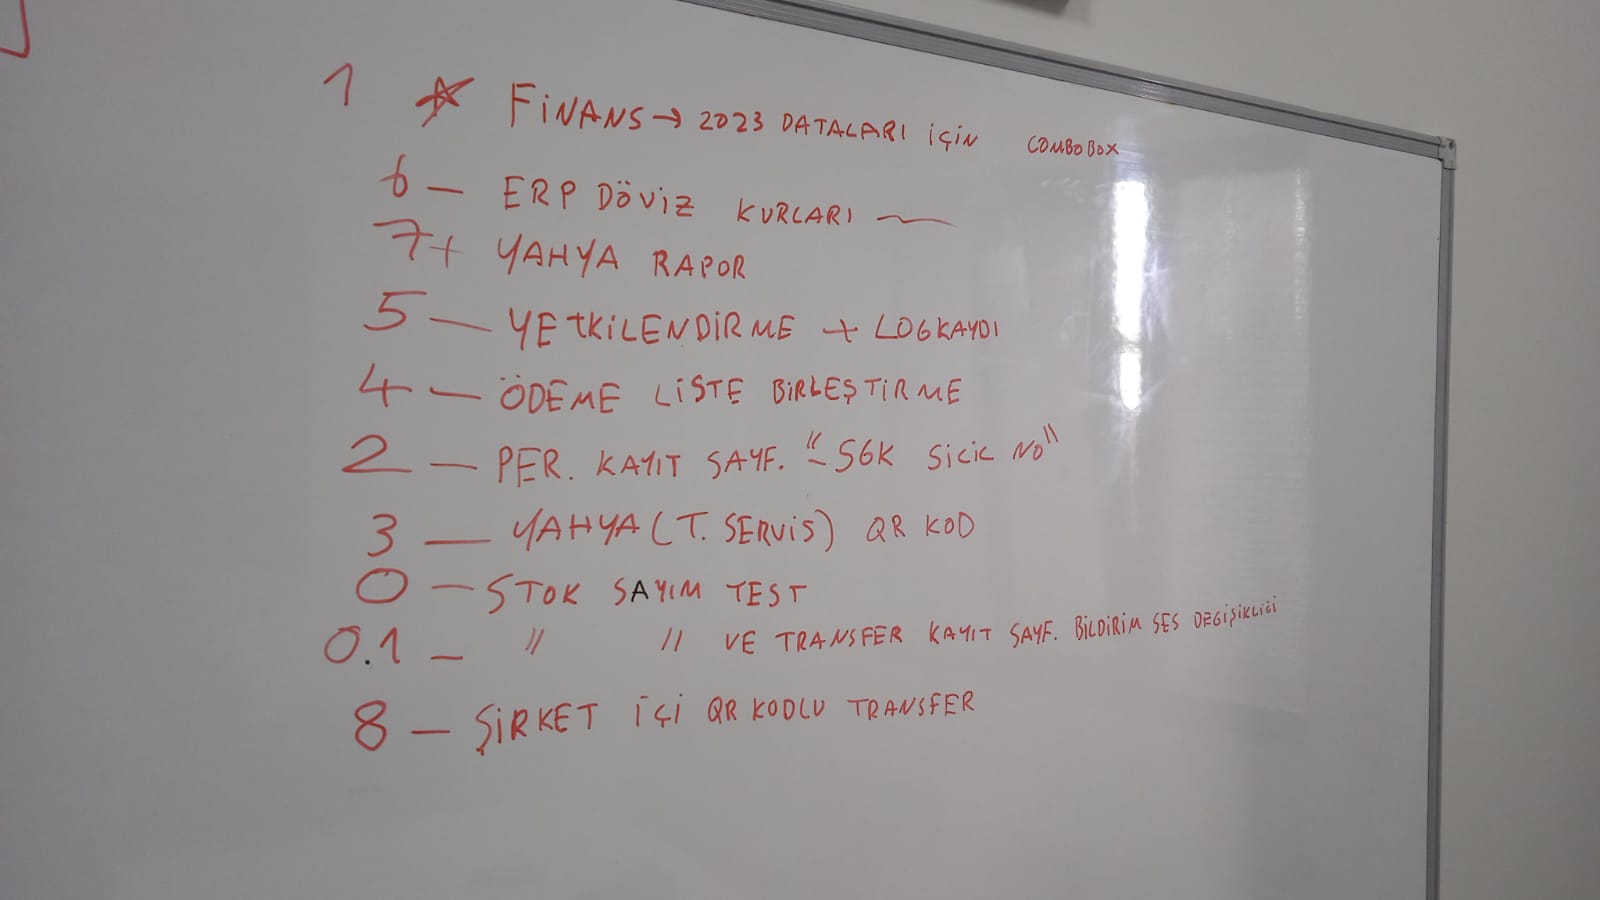 1 ☆ FİNANS → 2023 DATALARI İÇİN COMBOBOX
6 — ERP DÖVİZ KURLARI —
7+ YAHYA RAPOR
5 — YETKİLENDİRME + LOGKAYDI
4 — ÖDEME LİSTE BİRLEŞTİRME
2 — PER. KAYIT SAYF. "- SGK SİCİL NO"
3 — YAHYA (T. SERVİS) QR KOD
0 — STOK SAYIM TEST
0.1 — " " VE TRANSFER KAYIT SAYF. BİLDİRİM SES DEĞİŞİKLİĞİ
8 — ŞİRKET İÇİ QR KODLU TRANSFER